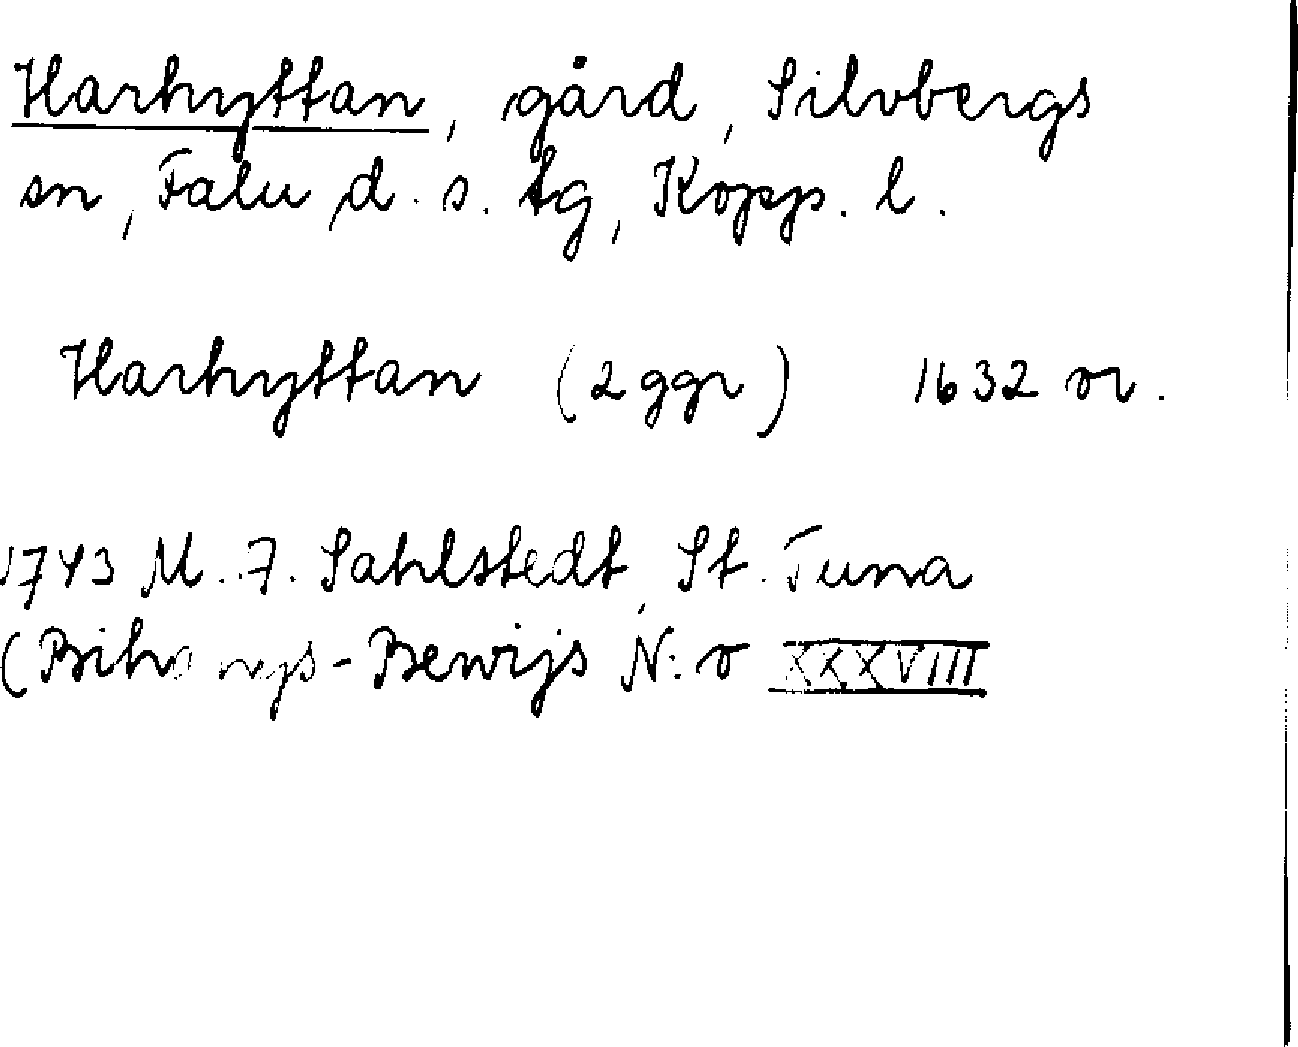 Harhyttan, gård, Silvbergs
sn, Falu d. s. tg, Kopp. l.
Harhyttan (2 ggr) 1632 or.
1743 M. F. Sahlstedt, St. Tuna
(Bihangs-Bewijs N:o XXXVIII